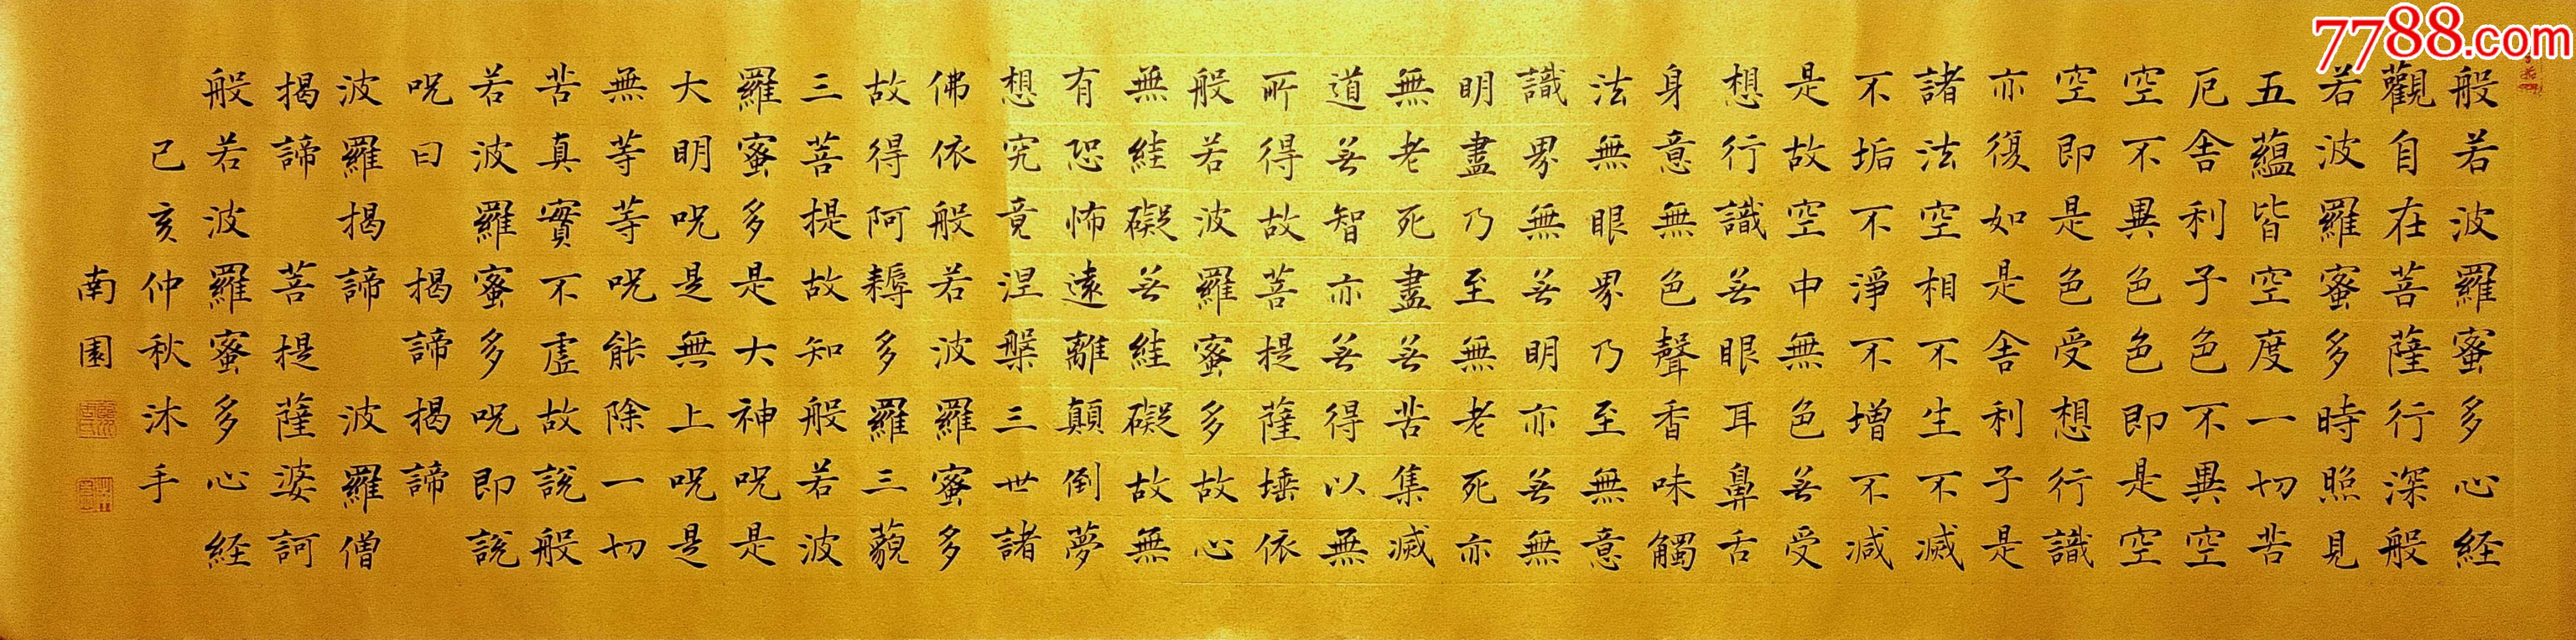 7788.com
般若波羅蜜多心経
觀自在菩薩行深般
若波羅蜜多時照見
五蘊皆空度一切苦
厄舎利子色不異空
空不異色色即是空
空即是色受想行識
亦復如是舎利子是
諸法空相不生不滅
不垢不淨不増不減
是故空中無色无受
想行識无眼耳鼻舌
身意無色聲香味觸
法無眼界乃至無意
識界無无明亦无無
明盡乃至無老死亦
無老死盡无苦集滅
道无智亦无得以無
所得故菩提薩埵依
般若波羅蜜多故心
無絓礙无絓礙故無
有恐怖遠離顛倒夢
想究竟涅槃三世諸
佛依般若波羅蜜多
故得阿耨多羅三藐
三菩提故知般若波
羅蜜多是大神呪是
大明呪是無上呪是
無等等呪能除一切
苦真實不虛故說般
若波羅蜜多呪即說
呪曰 揭諦揭諦
波羅揭諦 波羅僧
揭諦 菩提薩婆訶
般若波羅蜜多心経
己亥仲秋沐手
南園